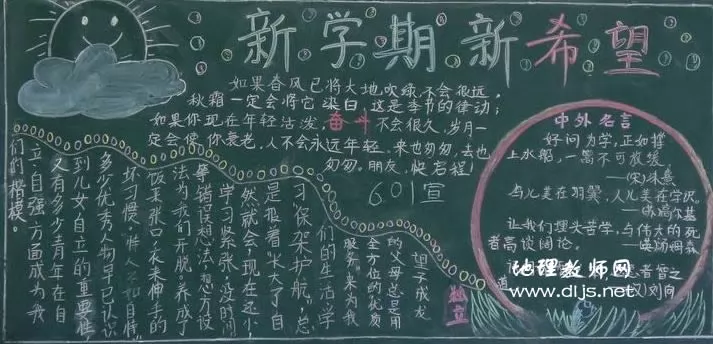 新学期新希望
如果春风已将大地吹绿,不会很远,
秋霜一定会将它染白,这是季节的律动;
如果你现在年轻活泼,奋斗不会很久,岁月一
定会使你衰老,人不会永远年轻。来也匆匆,去也
匆匆。朋友,快启程!
601宣
中外名言
好问为学,正如撑
上水船,一篙不可放缓。
鸟儿美在羽翼,人儿美在学识。
让我们埋头苦学,与伟大的死
者高谈阔论。
独立
望子成龙
的父母总是用
全方位的优质
服务来为我
们的生活学
习保架护航,总
是抱着“长大了自
然就会,现在还小,
学习紧张,没时间
等错误想法,想方设
法为我们开脱,养成了
饭来张口衣来伸手的
坏习惯,
多少优秀人物早已认识
到儿女自立的重要性,
又有多少青年在自
立自强方面成为我
们的楷模。
地理教师网
www.dljs.net